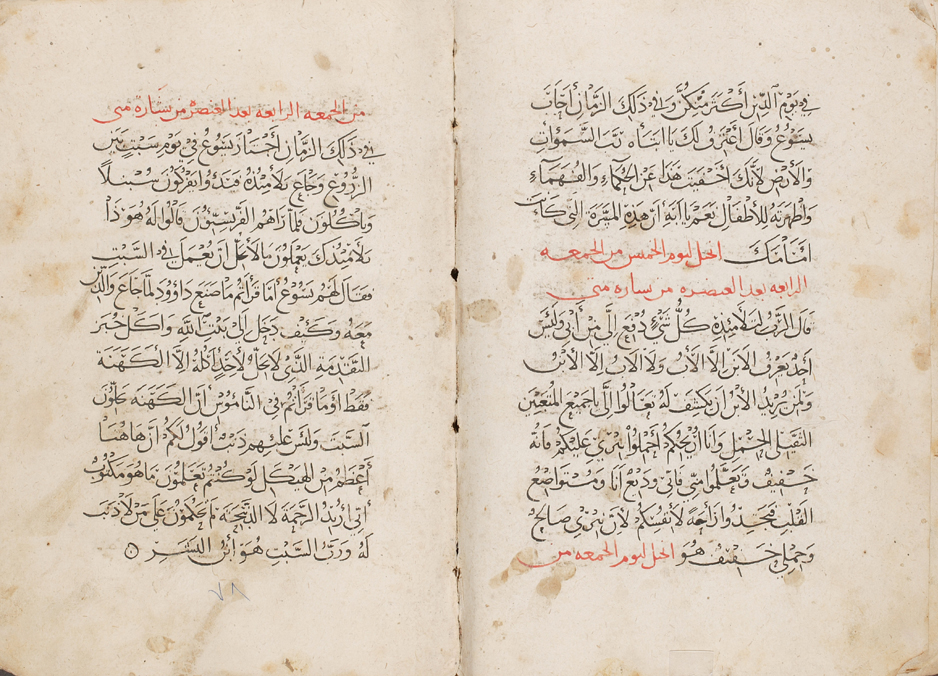 في يوم الدين أكثر منكن وفي ذلك الزمان أجاب
يسوع وقال أعترف لك يا ابتاه رب السموات
والأرض لأنك أخفيت هذا عن الحكماء والفهماء
وأظهرته للأطفال نعم يا أبه أن هذه المسرة التي كانت
أمامك انجيل ليوم الخميس من الجمعه
الرابعه بعد العنصره من بشاره متى
قال الرب لتلاميذه كل شيء دفع إلي من أبي وليس
أحد يعرف الابن إلا الأب ولا الأب إلا الابن
ولمن يريد الابن ان يكشف له تعالوا إلي يا جميع المتعبين
الثقيلي الحمل وأنا أريحكم أحملوا نيري عليكم فانه
خفيف وتعلموا مني فاني وديع أنا ومتواضع
القلب فتجدوا راحة لأنفسكم لأن نيري صالح
وحملي خفيف هو انجيل ليوم الجمعه من
من الجمعه الرابعه بعد العنصره من بشاره متى
في ذلك الزمان أجتاز يسوع في يوم سبت بين
الزروع وجاع تلاميذه فبدأوا يفركون سنبلاً
ويأكلون فلما رآهم الفريسيون قالوا له هوذا
تلاميذك يعملون ما لا يحل أن يعمل في السبت
فقال لهم يسوع أما قرأتم ما صنع داوود لما جاع والذين
معه وكيف دخل إلى بيت الله واكل خبز
التقدمة الذي لا يحل لأحد أكله إلا الكهنة
فقط أوما قرأتم في الناموس أن الكهنه يحلون
السبت وليس عليهم ذنب أقول لكم أن هاهنا
أعظم من الهيكل لو كنتم تعلمون ما هو مكتوب
أني أريد الرحمة لا الذبيحة لم تحكموا على من لا ذنب
له ورب السبت هو أبن البشر
٧٨